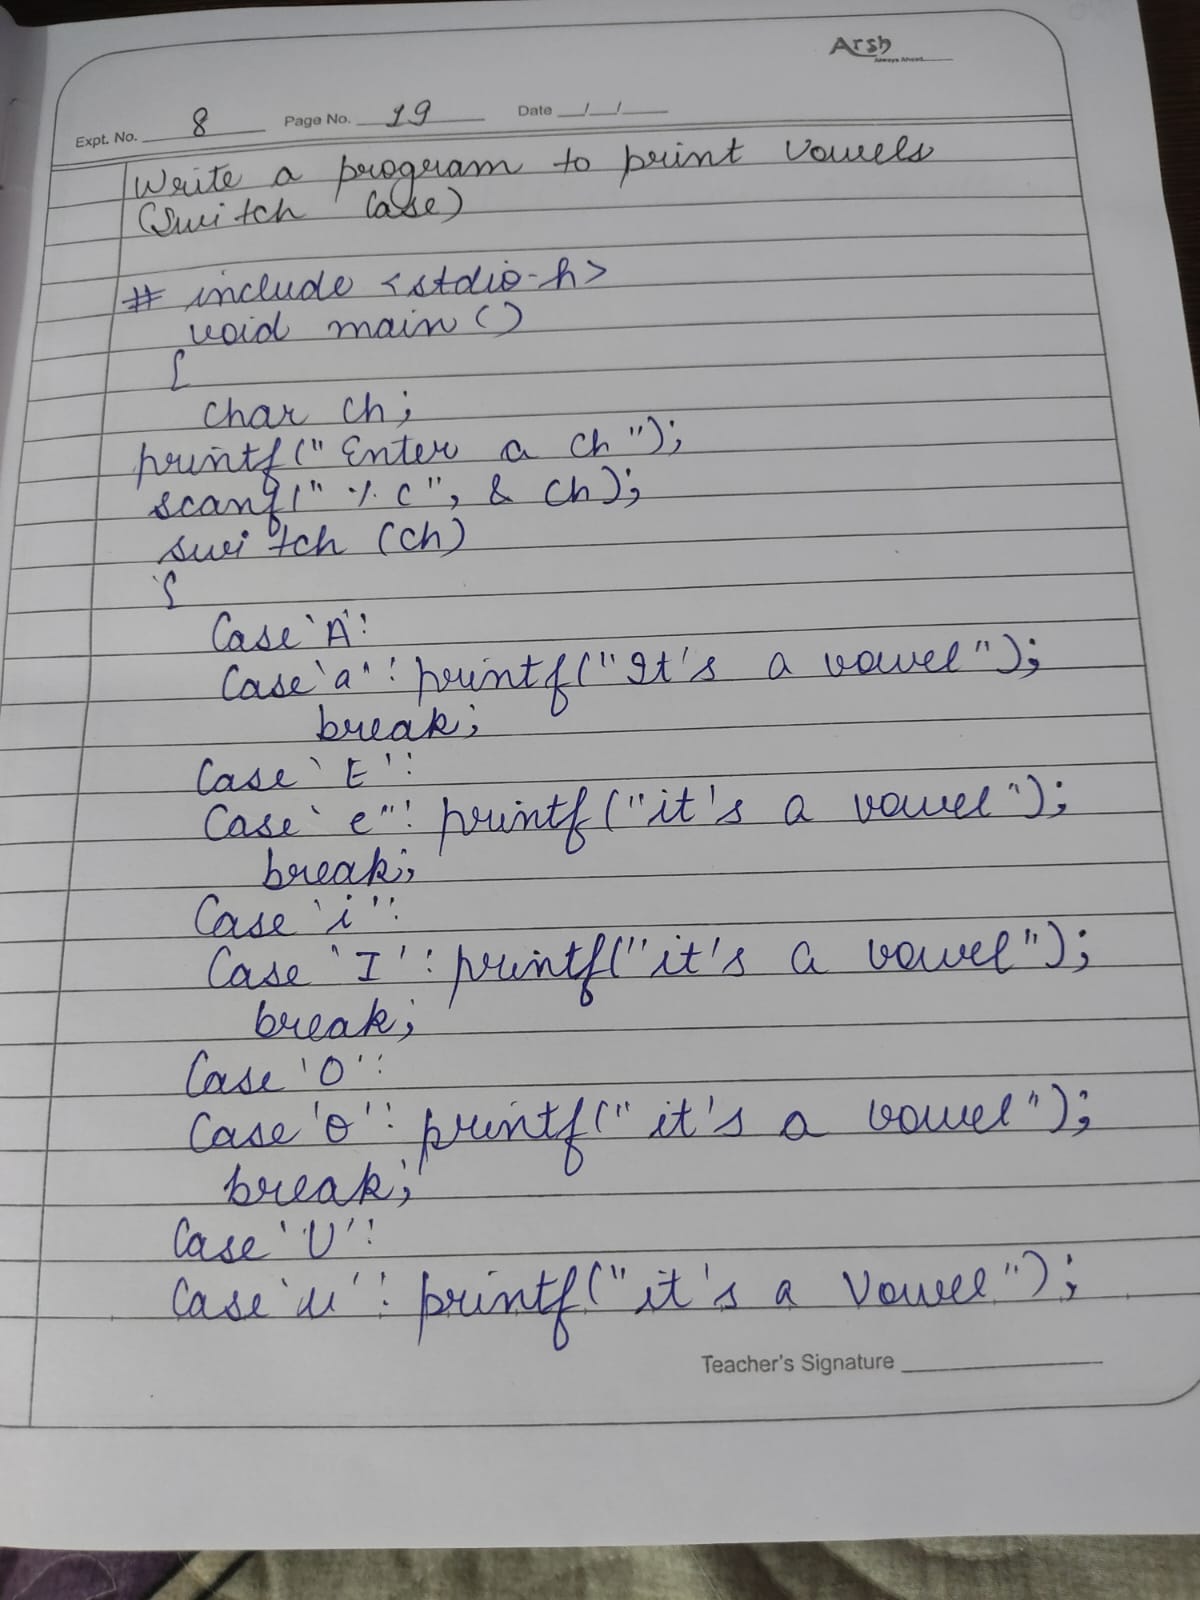 Arsh
Always Ahead
Expt. No. 8 Page No. 19 Date / /
Write a program to print vowels
(Switch Case)
# include <stdio.h>
void main ()
{
char ch;
printf (" Enter a ch ");
scanf (" % c", & ch);
switch (ch)
{
Case 'A':
Case 'a': printf ("It's a vowel");
break;
Case 'E':
Case 'e': printf ("it's a vowel");
break;
Case 'i':
Case 'I': printf ("it's a vowel");
break;
Case 'O':
Case 'o': printf (" it's a vowel");
break;
Case 'U':
Case 'u': printf (" it's a Vowel");
Teacher's Signature